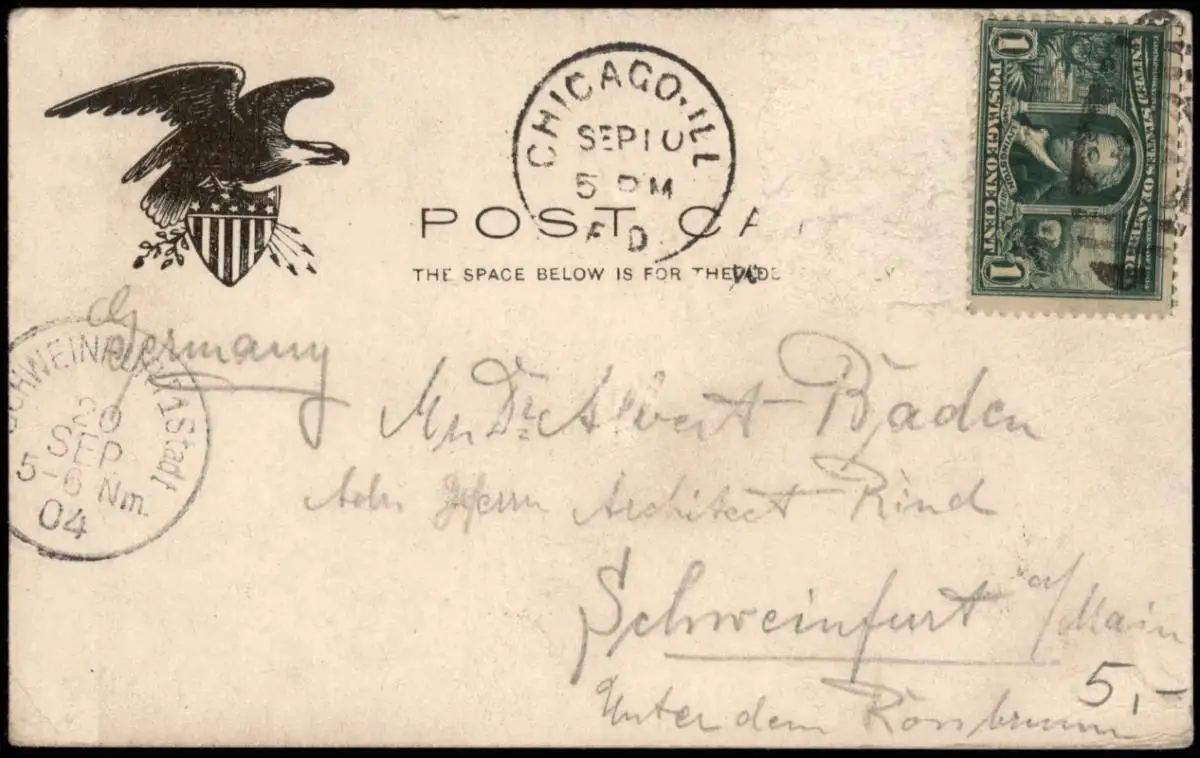 CHICAGO·ILL
SEP 10
5 PM
POST CA
THE SPACE BELOW IS FOR THE
1 POSTAGE ONE CENT 1
UNITED STATES OF AMERICA
Germany
SCHWEINFURT 1 Stadt
20
SEP
5-6 Nm.
04
Dr. Albert Baden
Herrn Architect Rind
Schweinfurt a/Main
5,-
Unter dem